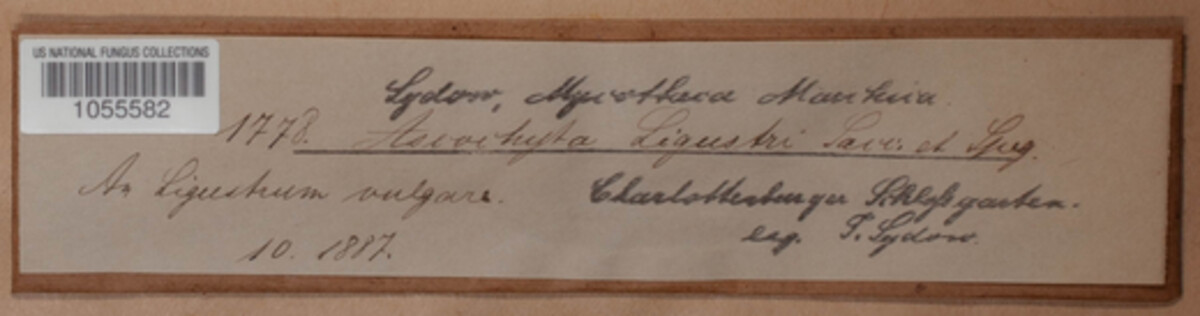 US NATIONAL FUNGUS COLLECTIONS
1055582
Sydow, Mycotheca Marchica
1778. Ascochyta Ligustri Sacc. et Speg.
An Ligustrum vulgare.
Charlottenburger Schloßgarten.
10. 1887.
leg. P. Sydow.